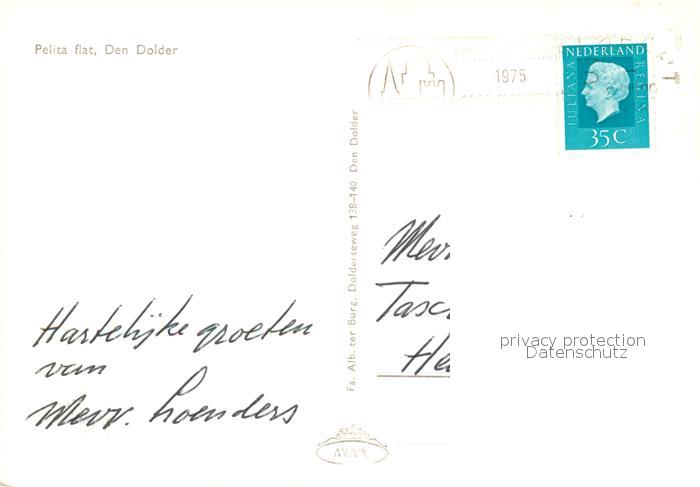 Pelita flat, Den Dolder
1975
NEDERLAND
JULIANA
REGINA
35C
Fa. Alb. ter Burg, Dolderseweg 138-140, Den Dolder
Mevr
Tasc
He
privacy protection
Datenschutz
Hartelijke groeten
van
Mevr. Loenders
MUVA